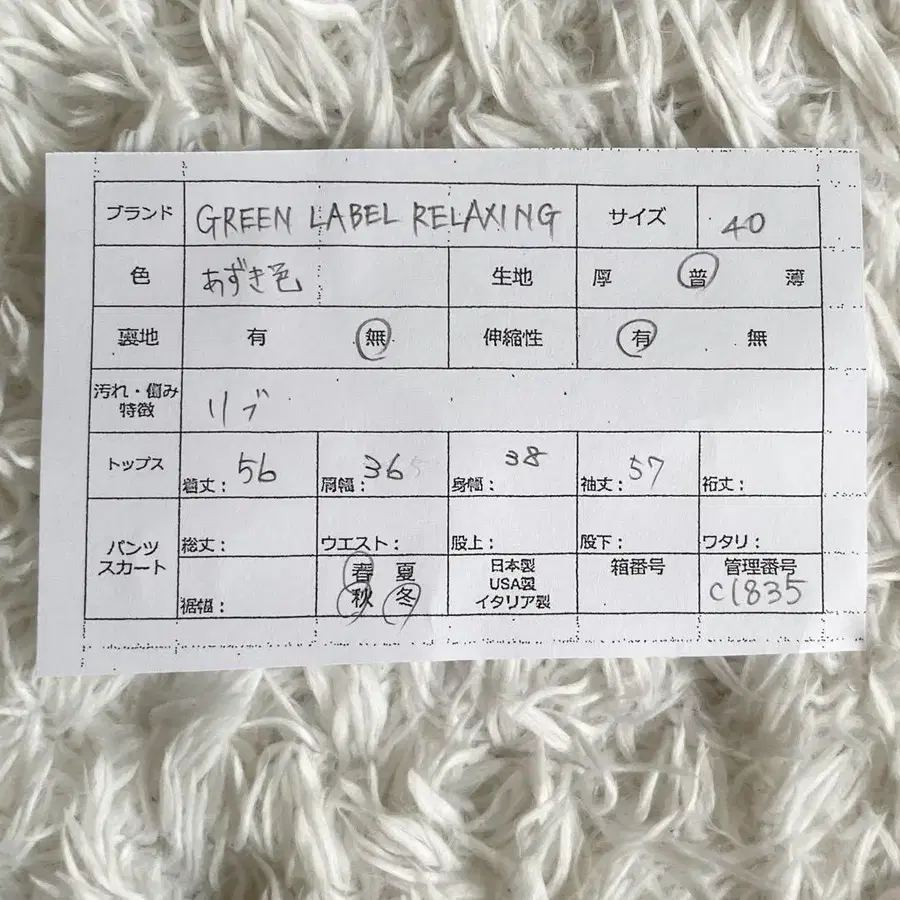 ブランド GREEN LABEL RELAXING サイズ 40
色 あずき色 生地 厚 普 薄
裏地 有 無 伸縮性 有 無
汚れ・傷み
特徴 リブ
トップス 着丈: 56 肩幅: 36 身幅: 38 袖丈: 57 裄丈:
パンツ
スカート 総丈: ウエスト: 股上: 股下: ワタリ:
裾幅: 春 夏
秋 冬 日本製
USA製
イタリア製 箱番号 管理番号
C1835